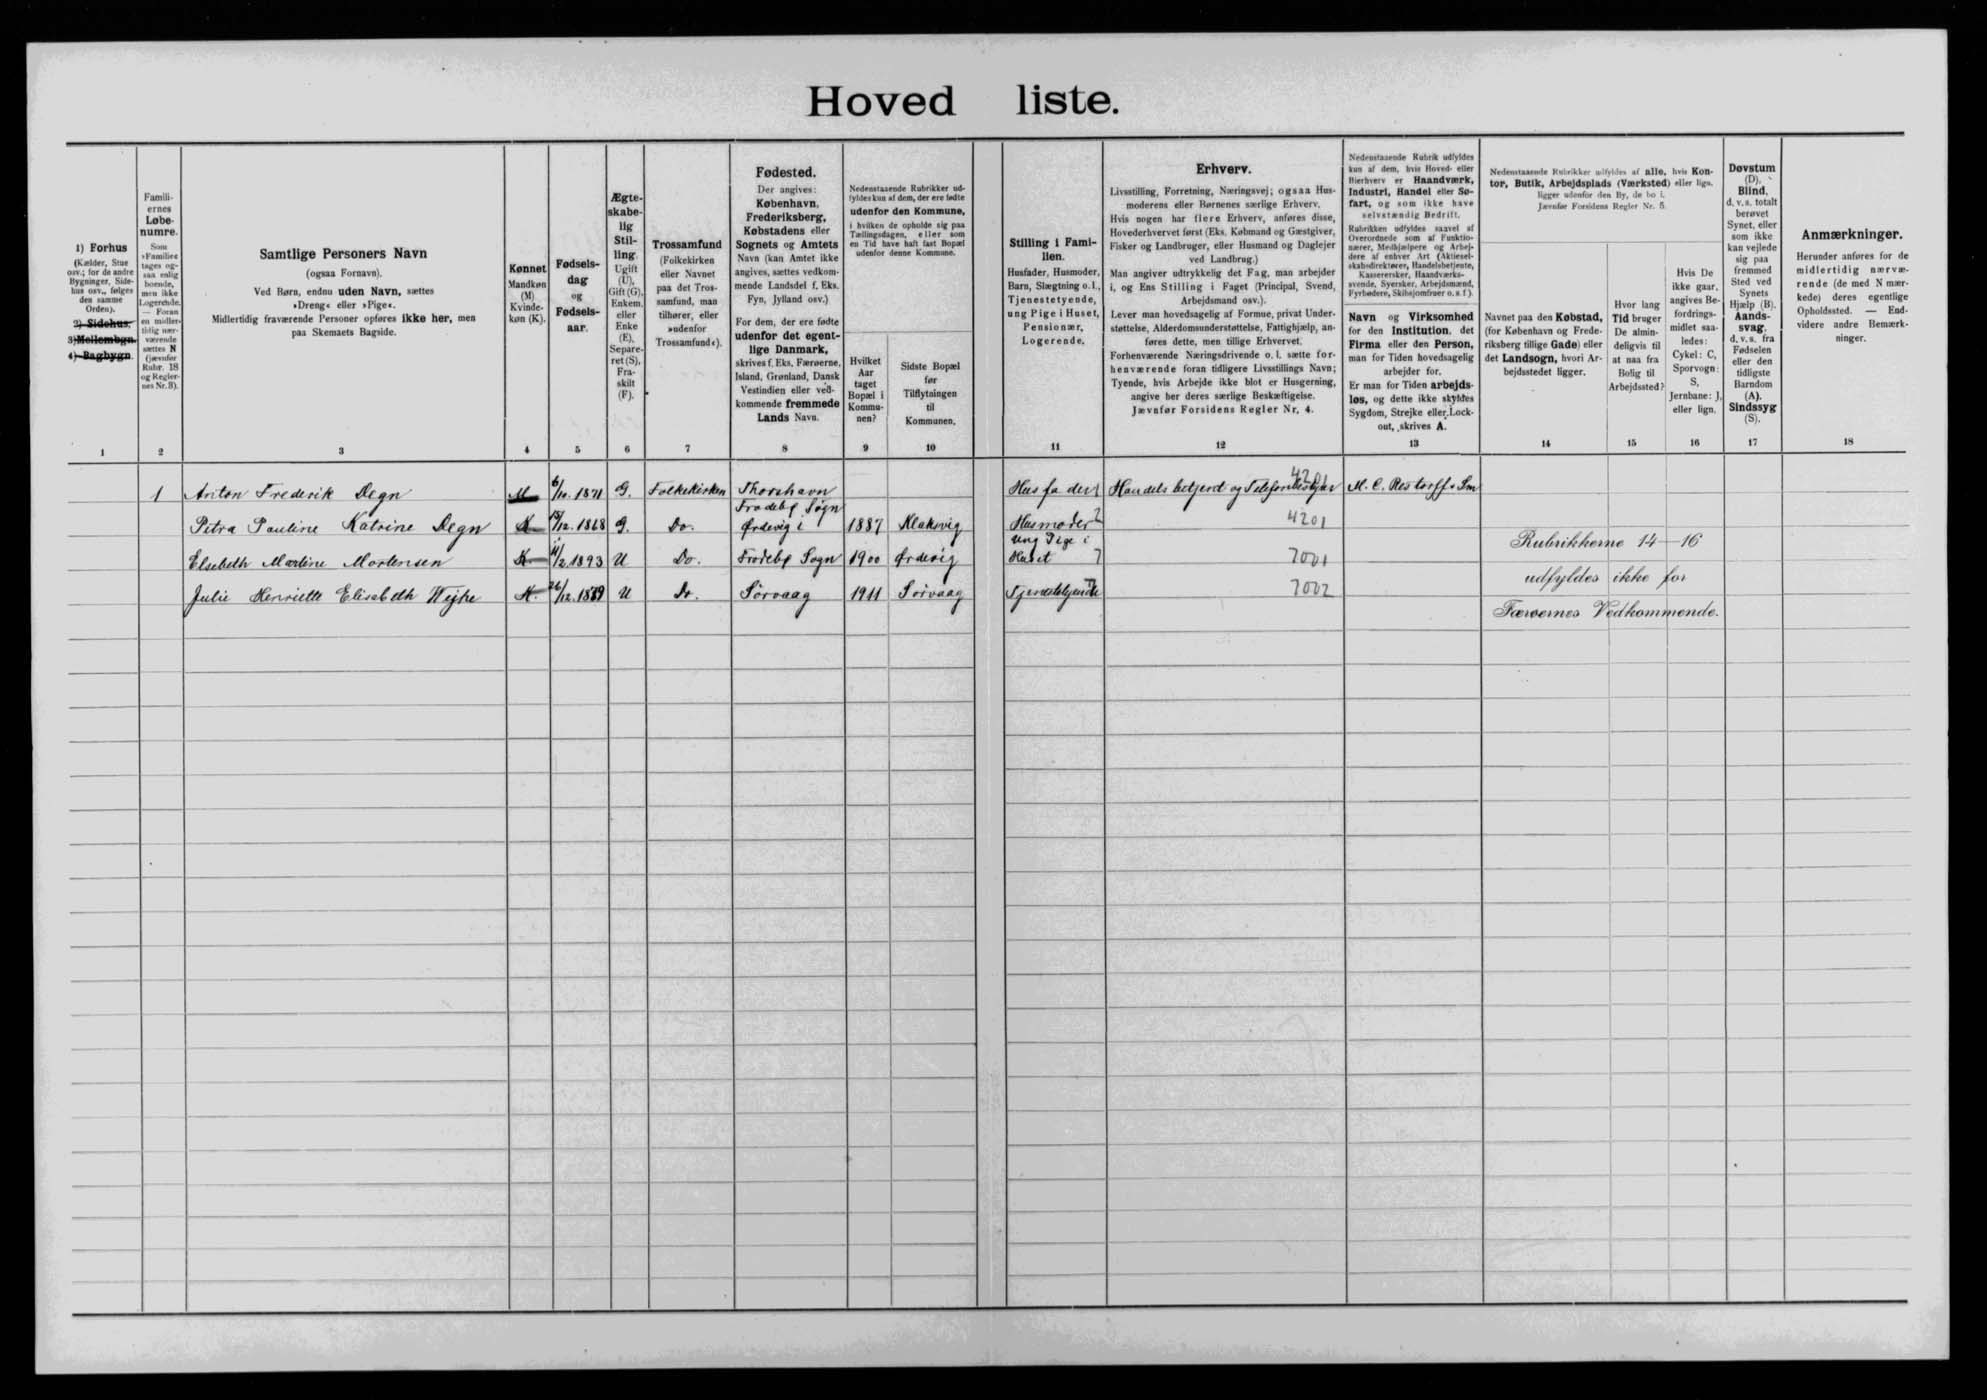 Hoved liste.
1) Forhus
(Kælder, Stue
osv.; for de andre
Bygninger, Side-
hus osv., følges
den samme
Orden).
2) Sidehus.
3) Mellembgn.
4) Bagbygn.
1
Famili-
ernes
Løbe-
numre.
Som
»Familie«
tages og-
saa enlig
boende,
men ikke
Logerende.
— Foran
en midler-
tidig nær-
værende
sættes N
(jævnfør
Rubr. 18
og Regler-
nes Nr. 3).
2
Samtlige Personers Navn
(ogsaa Fornavn).
Ved Børn, endnu uden Navn, sættes
»Dreng« eller »Pige«.
Midlertidig fraværende Personer opføres ikke her, men
paa Skemaets Bagside.
3
Kønnet
Mandkøn
(M)
Kvinde-
køn (K).
4
Fødsels-
dag
og
Fødsels-
aar.
5
Ægte-
skabe-
lig
Stil-
ling.
Ugift
(U),
Gift (G),
Enkem.
eller
Enke
(E),
Separe-
ret (S),
Fra-
skilt
(F).
6
Trossamfund
(Folkekirken
eller Navnet
paa det Tros-
samfund, man
tilhører, eller
»udenfor
Trossamfund«).
7
Fødested.
Der angives:
København,
Frederiksberg,
Købstadens eller
Sognets og Amtets
Navn (kan Amtet ikke
angives, sættes vedkom-
mende Landsdel f. Eks.
Fyn, Jylland osv.)
For dem, der ere fødte
udenfor det egent-
lige Danmark,
skrives f. Eks. Færøerne,
Island, Grønland, Dansk
Vestindien eller ved-
kommende fremmede
Lands Navn.
8
Nedenstaaende Rubrikker ud-
fyldes kun af dem, der ere fødte
udenfor den Kommune,
i hvilken de opholde sig paa
Tællingsdagen, eller som
en Tid have haft fast Bopæl
udenfor denne Kommune.
Hvilket
Aar
taget
Bopæl i
Kommu-
nen?
9
Sidste Bopæl
før
Tilflytningen
til
Kommunen.
10
Stilling i Fami-
lien.
Husfader, Husmoder,
Barn, Slægtning o. l.,
Tjenestetyende,
ung Pige i Huset,
Pensionær,
Logerende.
11
Erhverv.
Livsstilling, Forretning, Næringsvej; ogsaa Hus-
moderens eller Børnenes særlige Erhverv.
Hvis nogen har flere Erhverv, anføres disse,
Hovederhvervet først (Eks. Købmand og Gæstgiver,
Fisker og Landbruger, eller Husmand og Daglejer
ved Landbrug.)
Man angiver udtrykkelig det Fag, man arbejder
i, og Ens Stilling i Faget (Principal, Svend,
Arbejdsmand osv.).
Lever man hovedsagelig af Formue, privat Under-
støttelse, Alderdomsunderstøttelse, Fattighjælp, an-
føres dette, men tillige Erhvervet.
Forhenværende Næringsdrivende o. l. sætte for-
henværende foran tidligere Livsstillings Navn;
Tyende, hvis Arbejde ikke blot er Husgerning,
angive her deres særlige Beskæftigelse.
Jævnfør Forsidens Regler Nr. 4.
12
Nedenstaaende Rubrik udfyldes
kun af dem, hvis Hoved- eller
Bierhverv er Haandværk,
Industri, Handel eller Sø-
fart, og som ikke have
selvstændig Bedrift.
Rubrikken udfyldes saavel af
Overordnede som af Funktio-
nærer, Medhjælpere og Arbej-
dere af enhver Art (Aktiesel-
skabsdirektører, Handelsbetjente,
Kasserersker, Haandværks-
svende, Syersker, Arbejdsmænd,
Fyrbødere, Skibsjomfruer o. s. f.).
Navn og Virksomhed
for den Institution, det
Firma eller den Person,
man for Tiden hovedsagelig
arbejder for.
Er man for Tiden arbejds-
løs, og dette ikke skyldes
Sygdom, Strejke eller Lock-
out, skrives A.
13
Nedenstaaende Rubrikker udfyldes af alle, hvis Kon-
tor, Butik, Arbejdsplads (Værksted) eller lign.
ligger udenfor den By, de bo i.
Jævnfør Forsidens Regler Nr. 5.
Navnet paa den Købstad,
(for København og Frede-
riksberg tillige Gade) eller
det Landsogn, hvori Ar-
bejdsstedet ligger.
14
Hvor lang
Tid bruger
De almin-
deligvis til
at naa fra
Bolig til
Arbejdssted?
15
Hvis De
ikke gaar,
angives Be-
fordrings-
midlet saa-
ledes:
Cykel: C,
Sporvogn:
S,
Jernbane: J,
eller lign.
16
Døvstum
(D),
Blind,
d. v. s. totalt
berøvet
Synet, eller
som ikke
kan vejlede
sig paa
fremmed
Sted ved
Synets
Hjælp (B).
Aands-
svag,
d. v. s. fra
Fødselen
eller den
tidligste
Barndom
(A).
Sindssyg
(S).
17
Anmærkninger.
Herunder anføres for de
midlertidig nærvæ-
rende (de med N mær-
kede) deres egentlige
Opholdssted. — End-
videre andre Bemærk-
ninger.
18
1 Anton Frederik Degn M 6/10. 1871 G. Folkekirken Thorshavn Husfader 1 Handelsbetjent og Telefonbestyrer 4201 M. C. Restorff & Søn
Petra Pauline Katrine Degn K 18/12. 1868 G. Do. Frodebø Sogn Ørdevig i 1887 Klaksvig Husmoder 2 4201
Elsebeth Marline Mortensen K 11/2. 1893 U Do. Frodebø Sogn 1900 Ørdevig Ung Pige i Huset 7 7001
Julie Henriette Elisabeth Wejhe K. 26/12. 1889 U Do. Sørvaag 1911 Sørvaag Tjenestetyende 7 7002
Rubrikkerne 14—16
udfyldes ikke for
Færøernes Vedkommende.